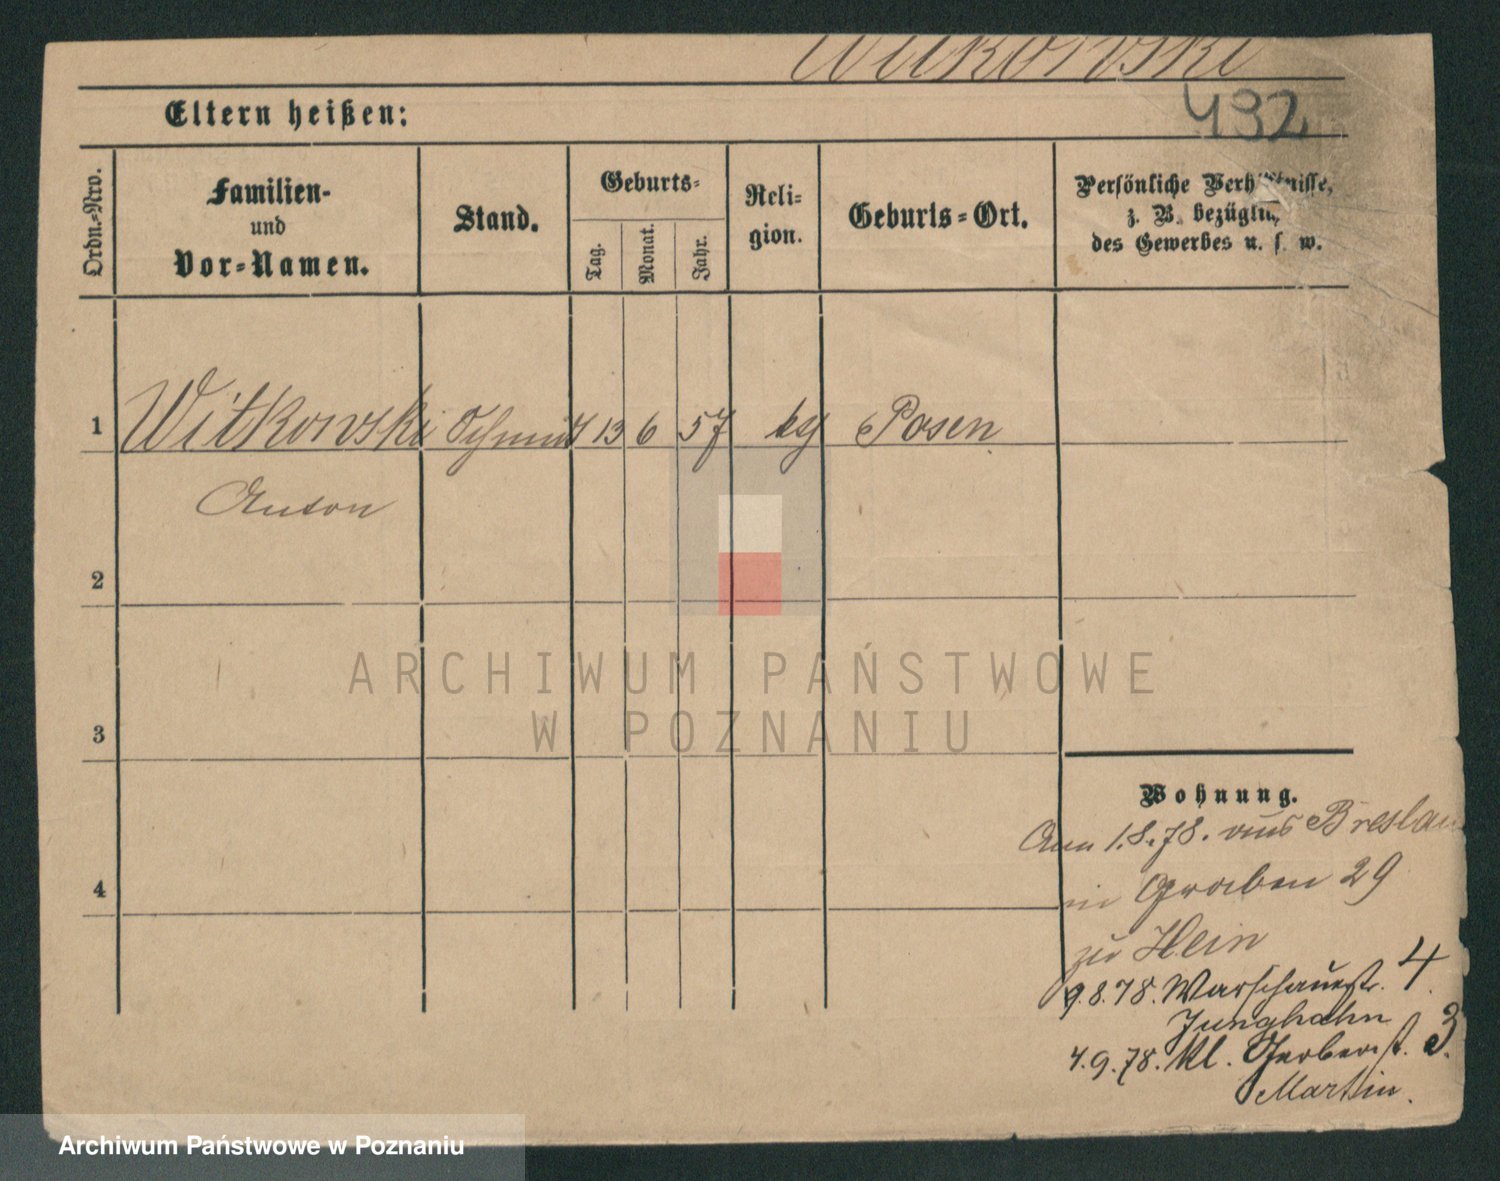 Witkowski
432
Eltern heißen:
Ordn.-Nro.
Familien-
und
Vor-Namen.
Stand.
Geburts-
Tag.
Monat.
Jahr.
Reli-
gion.
Geburts-Ort.
Persönliche Verhältnisse,
z. B. bezüglich
des Gewerbes u. s. w.
1 Witkowski Schmied 13 6 57 kg Posen
Anton
2
3
4
Wohnung.
Am 1.8.78. aus Breslau
in Graben 29
zu Hein
9.8.78. Warschauerstr. 4.
Junghahn
4.9.78. Kl. Gerberst. 3.
Martin.
ARCHIWUM PAŃSTWOWE
W POZNANIU
Archiwum Państwowe w Poznaniu